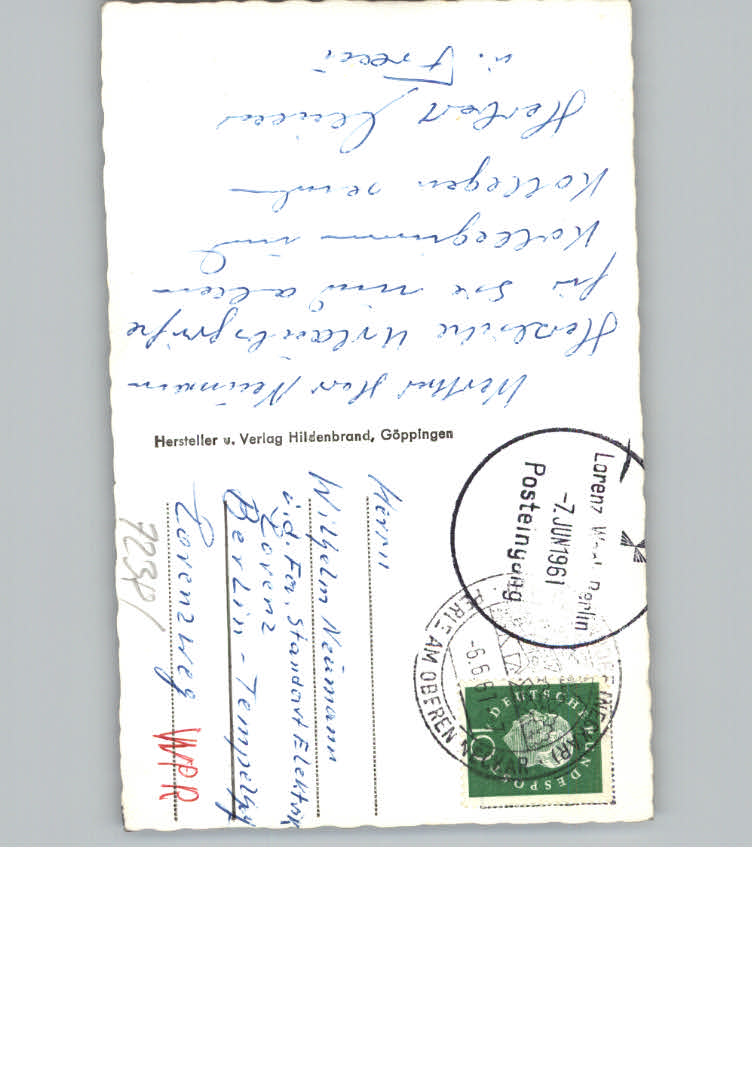 Werther Herr Neumann
Herzliche Urlaubsgrüße
für Sie und allen
Kolleginnen und
Kollegen
Herbert
u. Frau
Hersteller u. Verlag Hildenbrand, Göppingen
Herrn
Wilhelm Neumann
i.d. Fa. Standart Elektrik
Lorenz
Berlin - Tempelhof
Lorenzweg
WPR
7238/
Lorenz Werk Berlin
-7. JUN 1961
Posteingang
-6.6.61
AM OBEREN NECKAR
DEUTSCHE BUNDESPOST
10